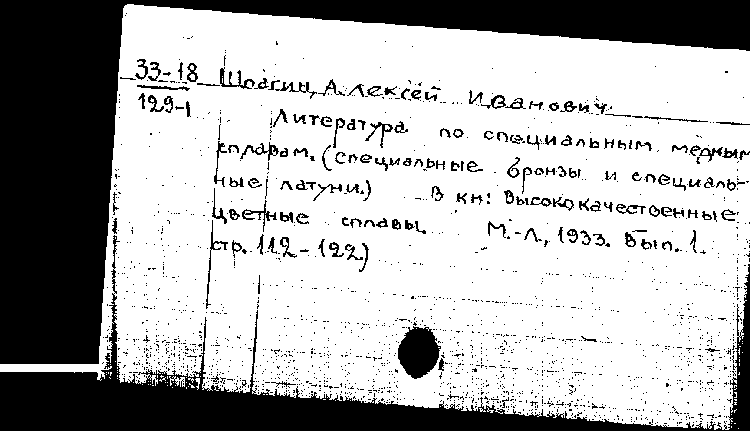 33-18 Шпагин, Алексей Иванович.
129-1
Литература по специальным медным
сплавам. (специальные бронзы и специаль-
ные латуни.) В кн: Высококачественные
цветные сплавы. М.-Л., 1933. Вып. 1.
стр. 112-122.)